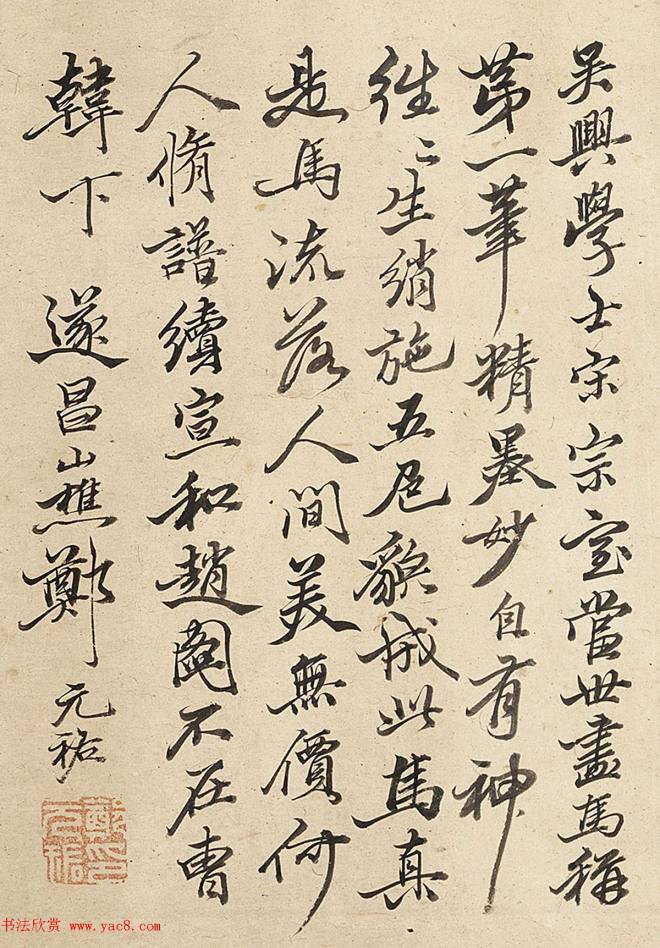 吴興學士宋宗室當世畫馬稱
苐一筆精墨妙自有神
往〻生綃施五色貌成此馬真
是馬流落人間美無價何
人脩譜續宣和趙圖不在曹
韓下 遂昌山樵鄭元祐
书法欣赏 www.yac8.com